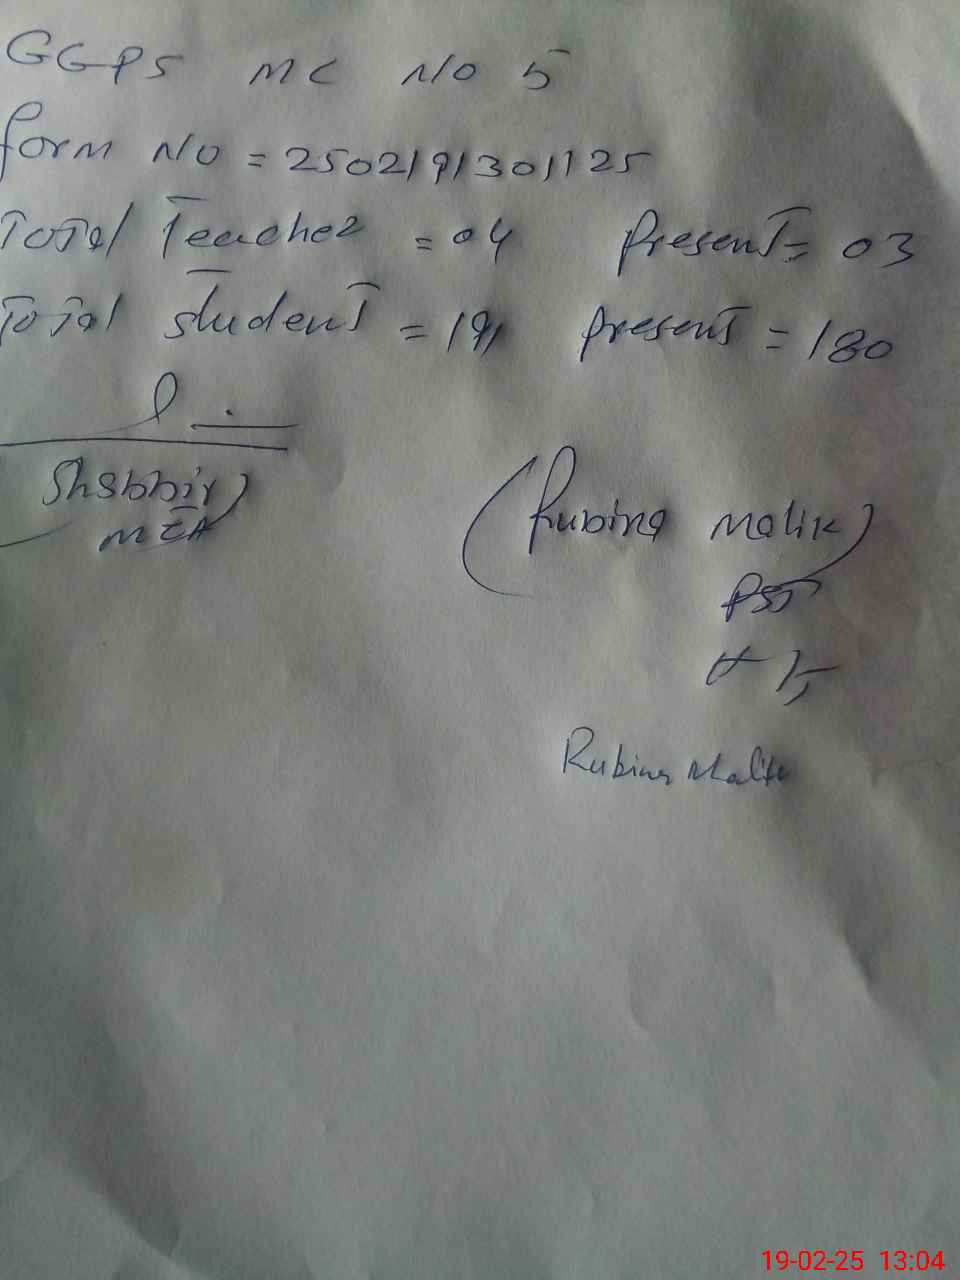 GGPS MC NO 5
form NO = 2502191301125
Total Teacher = 04 Present = 03
Total student = 191 present = 180
Shabbir
MEA
(Rubina Malik)
PST
Rubina Malik
19-02-25 13:04